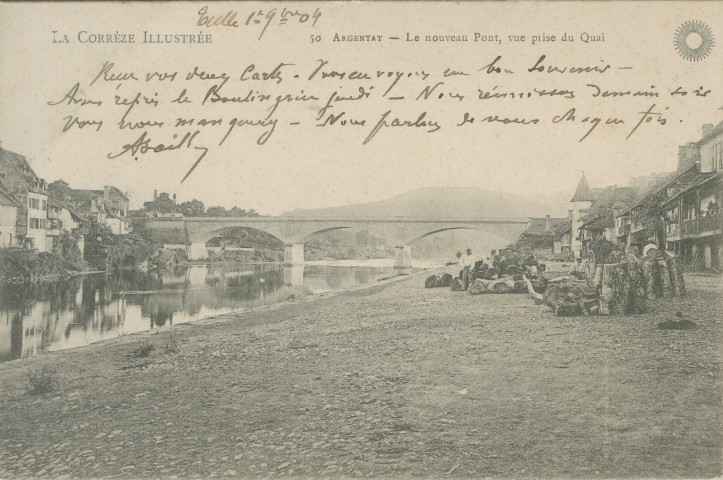 Tulle 1er 9bre 04
La Corrèze Illustrée
50 Argentat — Le nouveau Pont, vue prise du Quai
Reçu vos deux Cartes. Vous envoyons un bon Souvenir —
Avons repris le Boulingrin jeudi — Nous réunissons demain soir
Vous nous manquez — Nous parlons de vous chaque fois.